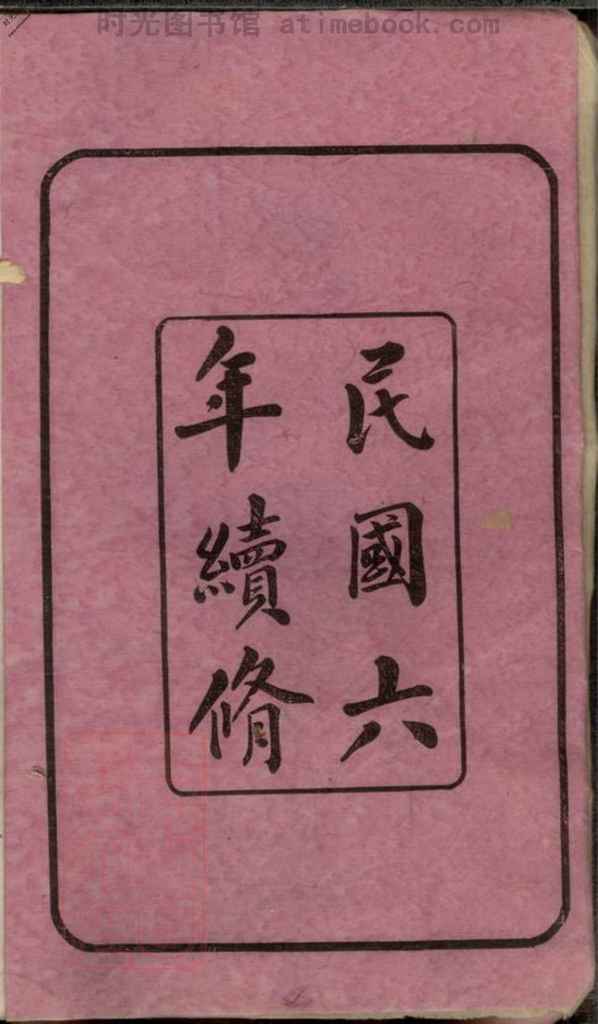 时光图书馆 atimebook.com
民國六
年續脩